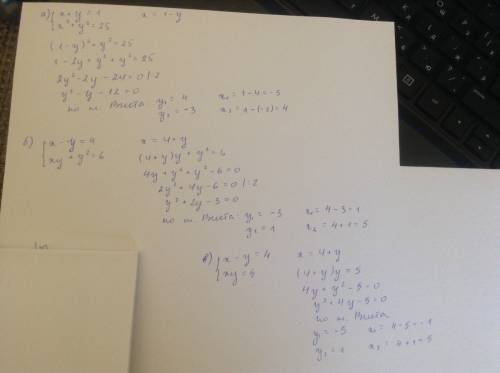 а) { x + y = 1    x = 1 - y
{ x² + y² = 25
(1 - y)² + y² = 25
1 - 2y + y² + y² = 25
2y² - 2y - 24 = 0 |:2
y² - y - 12 = 0
по т. Виета: y₁ = 4    x₁ = 1 - 4 = -3
y₂ = -3    x₂ = 1 - (-3) = 4
б) { x - y = 4    x = 4 + y
{ xy + y² = 6    (4 + y)y + y² = 6
4y + y² + y² - 6 = 0
2y² + 4y - 6 = 0 |:2
y² + 2y - 3 = 0
по т. Виета: y₁ = -3    x₁ = 4 - 3 = 1
y₂ = 1    x₂ = 4 + 1 = 5
в) { x - y = 4    x = 4 + y
{ xy = 5    (4 + y)y = 5
4y + y² - 5 = 0
y² + 4y - 5 = 0
по т. Виета
y₁ = -5    x₁ = 4 - 5 = -1
y₂ = 1    x₂ = 4 + 1 = 5